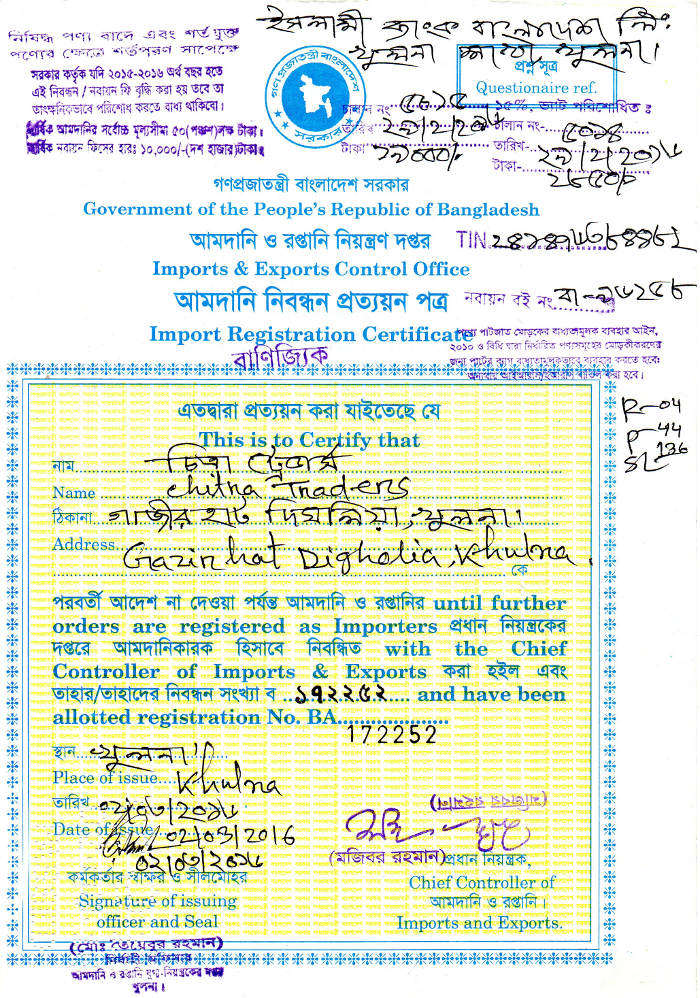 ইসলামী ব্যাংক বাংলাদেশ লিঃ
খুলনা শাখা, খুলনা।
নিষিদ্ধ পণ্য বাদে এবং শর্ত যুক্ত
পণ্যের ক্ষেত্রে শর্তপূরণ সাপেক্ষে
সরকার কর্তৃক যদি ২০১৫-২০১৬ অর্থ বছর হতে
এই নিবন্ধন / নবায়ন ফি বৃদ্ধি করা হয় তবে তা
তাৎক্ষনিকভাবে পরিশোধ করতে বাধ্য থাকিবো।
বার্ষিক আমদানির সর্বোচ্চ মূল্যসীমা ৫০(পঞ্চাশ)লক্ষ টাকা।
বার্ষিক নবায়ন ফিসের হারঃ ১০,০০০/-(দশ হাজার)টাকা।
গণপ্রজাতন্ত্রী বাংলাদেশ
সরকার
প্রশ্ন সূত্র
Questionaire ref.
চালান নং
তারিখ
টাকা
১৫% ভ্যাট পরিশোধিত ঃ
চালান নং-
তারিখ-
টাকা-
গণপ্রজাতন্ত্রী বাংলাদেশ সরকার
Government of the People's Republic of Bangladesh
আমদানি ও রপ্তানি নিয়ন্ত্রণ দপ্তর
TIN.
Imports & Exports Control Office
আমদানি নিবন্ধন প্রত্যয়ন পত্র
নবায়ন বই নং
Import Registration Certificate
পণ্যে পাটজাত মোড়কের বাধ্যতামূলক ব্যবহার আইন,
২০১০ ও বিধি দ্বারা নির্ধারিত পণ্যসমূহের মোড়কীকরণের
জন্য পাটের ব্যাগ বাধ্যতামূলকভাবে ব্যবহার করতে হবে।
বাণিজ্যিক
এতদ্বারা প্রত্যয়ন করা যাইতেছে যে
This is to Certify that
R-04
P-44
SL-136
নাম চিত্রা ট্রেডার্স
Name Chitra Traders
ঠিকানা গাজীর হাট দিঘলিয়া, খুলনা।
Address Gazir hat Dighalia, Khulna.
কে
পরবর্তী আদেশ না দেওয়া পর্যন্ত আমদানি ও রপ্তানির until further
orders are registered as Importers প্রধান নিয়ন্ত্রকের
দপ্তরে আমদানিকারক হিসাবে নিবন্ধিত with the Chief
Controller of Imports & Exports করা হইল এবং
তাহার/তাহাদের নিবন্ধন সংখ্যা ব ১৭২২৫২ and have been
allotted registration No. BA
172252
স্থান খুলনা।
Place of issue Khulna
তারিখ ০২/০৩/২০১৬
Date of issue 02/03/2016
০২/০৩/২০১৬
কর্মকর্তার স্বাক্ষর ও সীলমোহর
Signature of issuing
officer and Seal
(মোঃ তৈয়েবুর রহমান)
নির্বাহী অফিসার
আমদানি ও রপ্তানি যুগ্ম-নিয়ন্ত্রকের দপ্তর
খুলনা।
(মজিবর রহমান)
(মজিবর রহমান) প্রধান নিয়ন্ত্রক,
Chief Controller of
আমদানি ও রপ্তানি।
Imports and Exports.